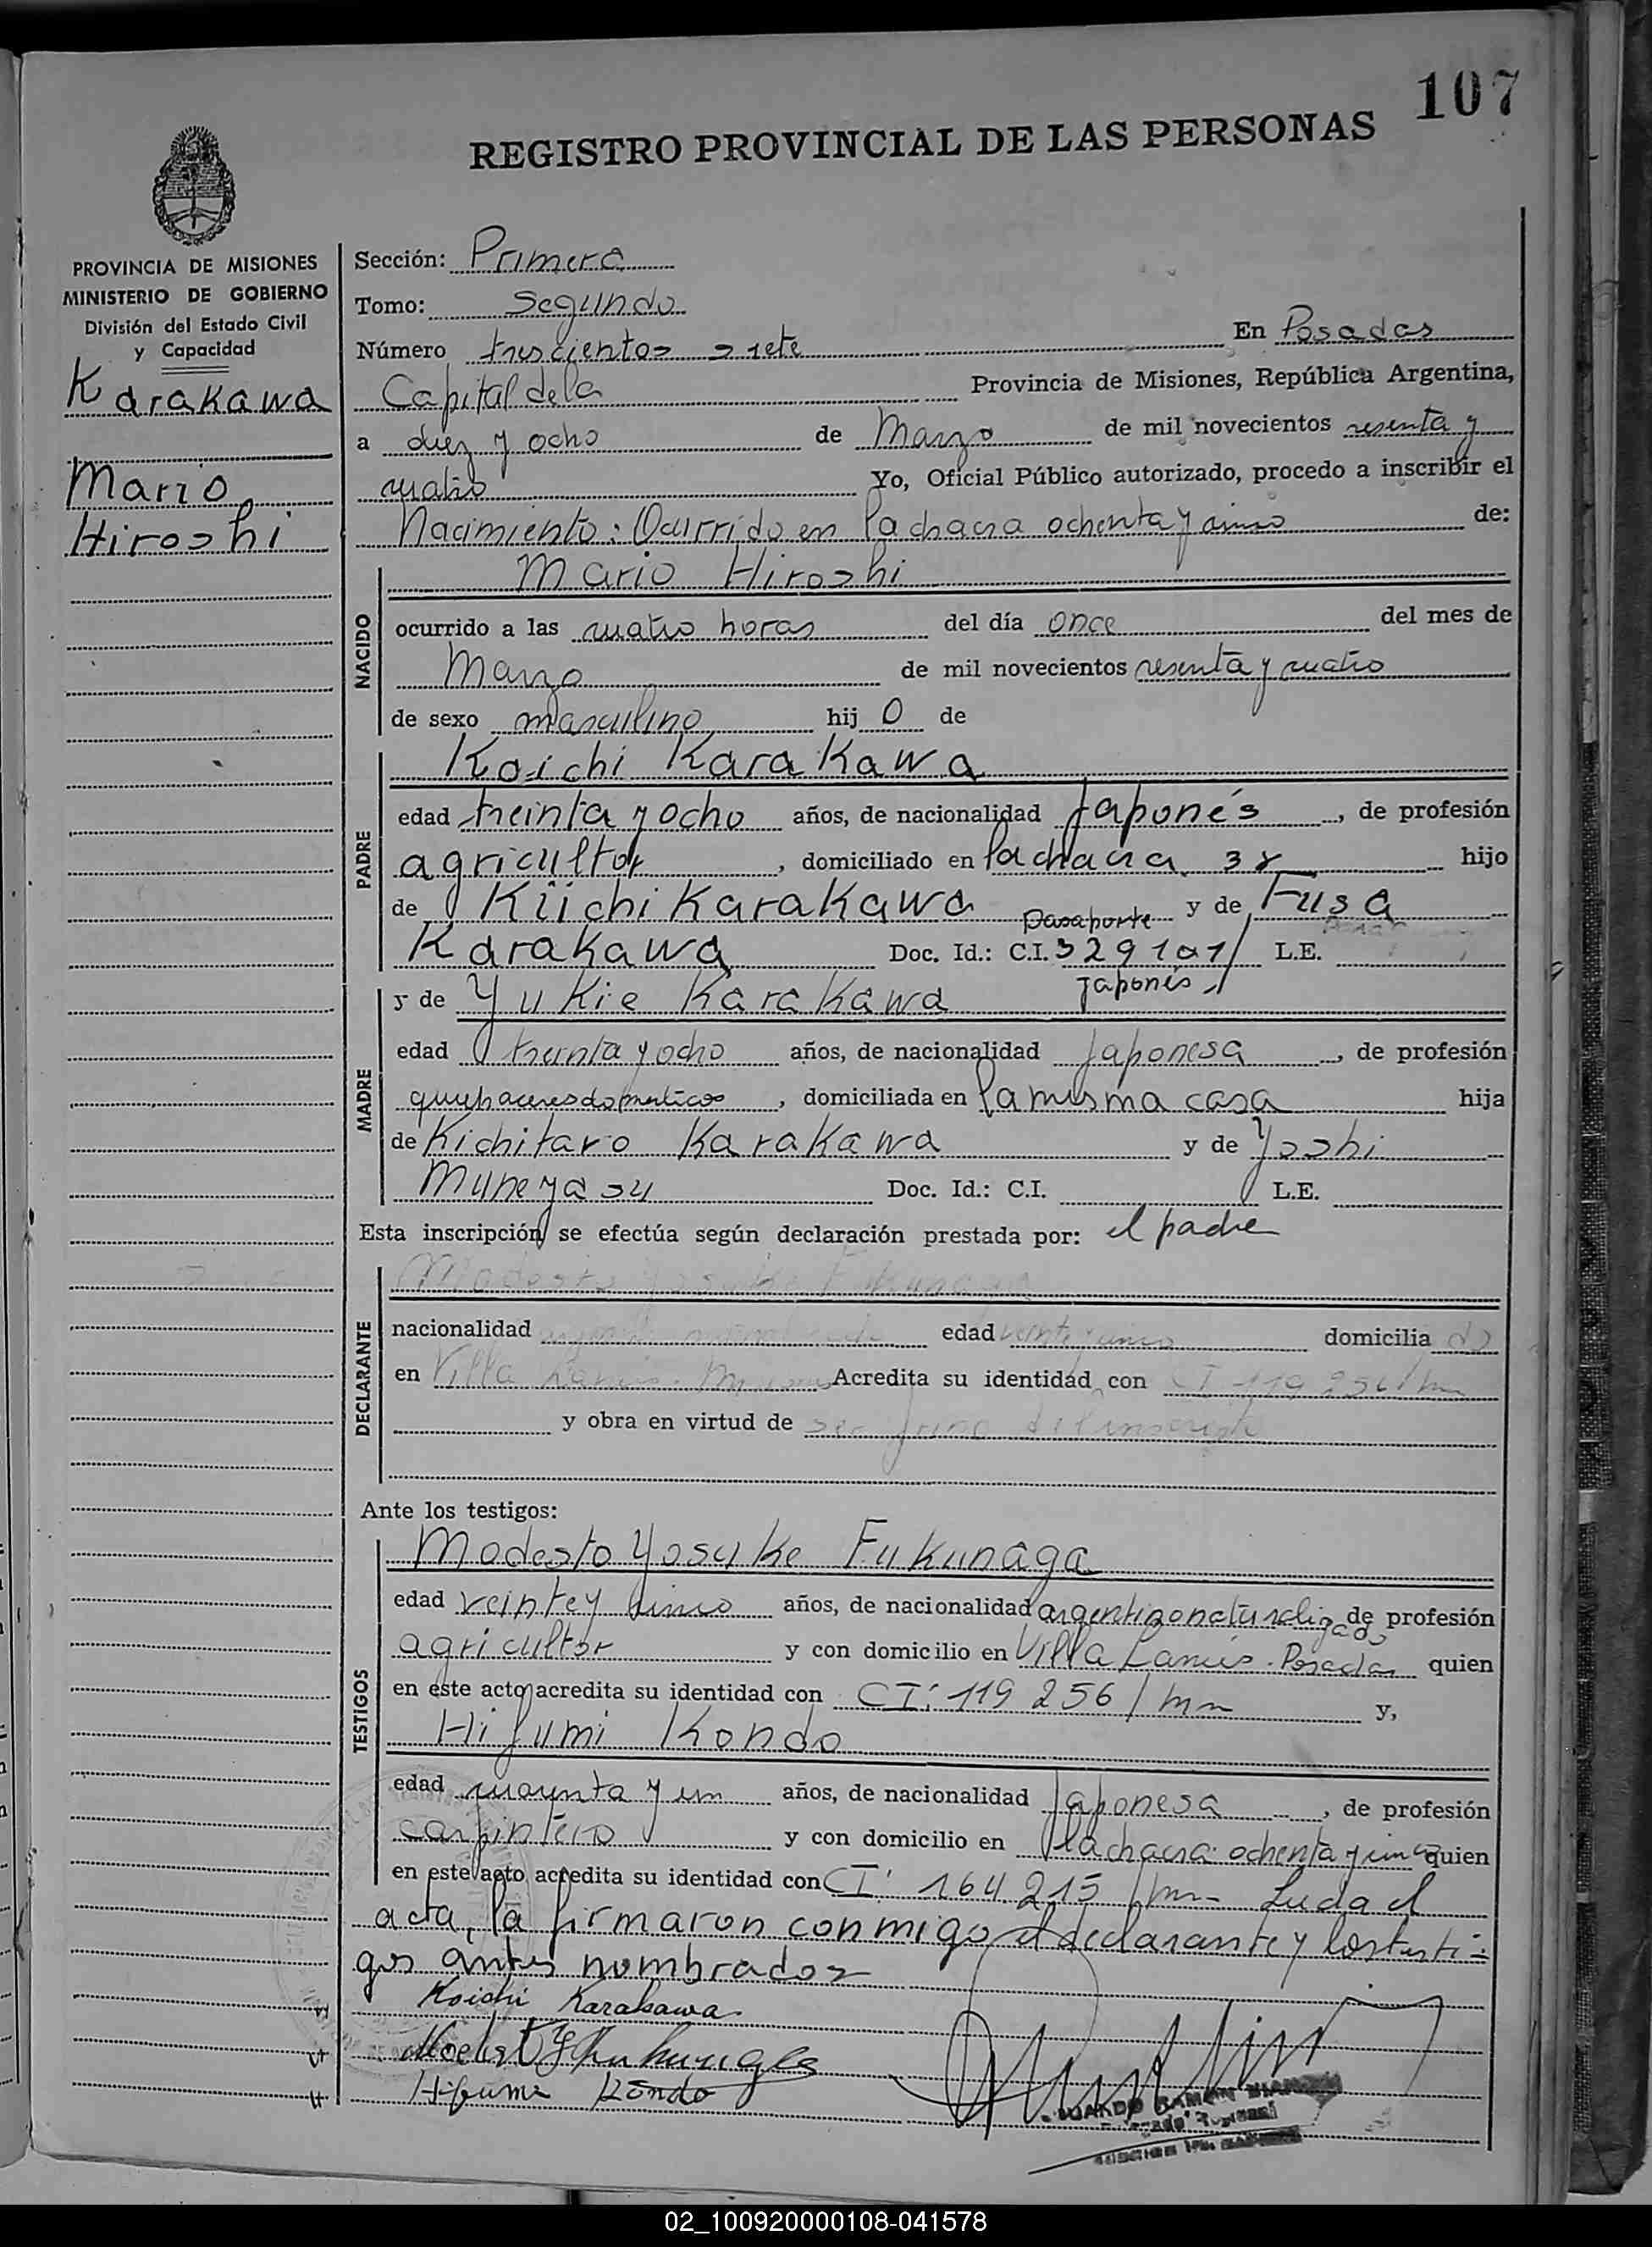 107
REGISTRO PROVINCIAL DE LAS PERSONAS
PROVINCIA DE MISIONES
MINISTERIO DE GOBIERNO
División del Estado Civil
y Capacidad
Karakawa
Mario
Hiroshi
Sección: Primera
Tomo: Segundo
Número trescientos siete En Posadas
Capital de la Provincia de Misiones, República Argentina,
a diez y ocho de Marzo de mil novecientos sesenta y
cuatro Yo, Oficial Público autorizado, procedo a inscribir el
Nacimiento: Ocurrido en la chacra ochenta y cinco de:
NACIDO
Mario Hiroshi
ocurrido a las cuatro horas del día once del mes de
Marzo de mil novecientos sesenta y cuatro
de sexo masculino hijo de
PADRE
Koichi Karakawa
edad treinta y ocho años, de nacionalidad Japonés, de profesión
agricultor, domiciliado en la chacra 38 hijo
de Kiichi Karakawa y de Fusa
pasaporte
Karakawa Doc. Id.: C.I. 329101/ L.E.
japonés
MADRE
y de Yukie Karakawa
edad treinta y ocho años, de nacionalidad Japonesa, de profesión
quehaceres domesticos, domiciliada en la misma casa hija
de Kichitaro Karakawa y de Yoshi
Muneyasu Doc. Id.: C.I. L.E.
Esta inscripción se efectúa según declaración prestada por: el padre
DECLARANTE
Modesto Yosuke Fukunaga
nacionalidad edad veinte y cinco domiciliado
en Villa Lanús Acredita su identidad con CI 119 256/mn
y obra en virtud de ser
Ante los testigos:
TESTIGOS
Modesto Yosuke Fukunaga
edad veinte y cinco años, de nacionalidad argentino naturalizado de profesión
agricultor y con domicilio en Villa Lanús. Posadas quien
en este acto acredita su identidad con CI: 119 256/mn y,
Hifumi Kondo
edad cuarenta y un años, de nacionalidad Japonesa, de profesión
carpintero y con domicilio en la chacra ochenta y cinco quien
en este acto acredita su identidad con CI: 164 215/mn- Leida el
acta, la firmaron conmigo el declarante y los testi-
gos antes nombrados
Koichi Karakawa
Hifumi Kondo
02_100920000108-041578